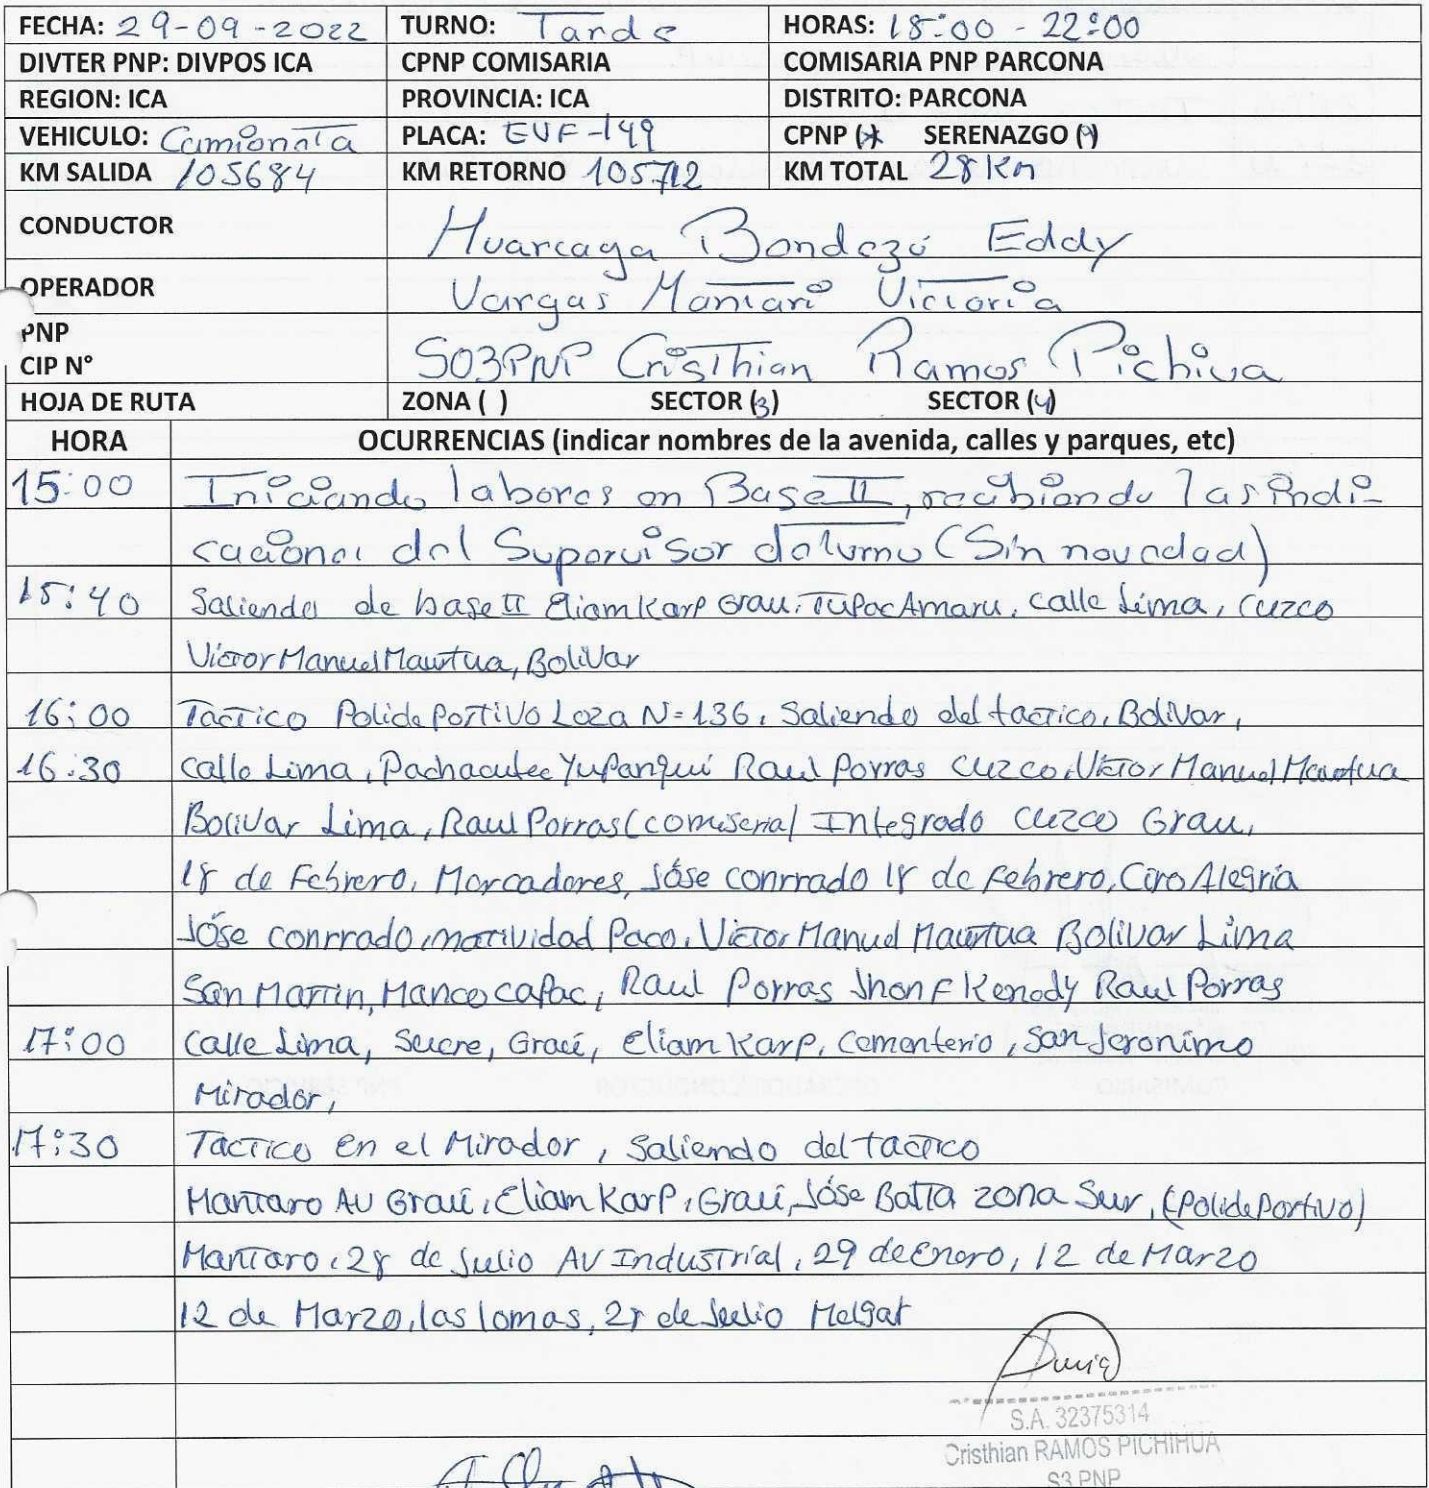 FECHA: 29-09-2022 TURNO: Tarde HORAS: 15:00 - 22:00
DIVTER PNP: DIVPOS ICA CPNP COMISARIA COMISARIA PNP PARCONA
REGION: ICA PROVINCIA: ICA DISTRITO: PARCONA
VEHICULO: Camioneta PLACA: EUF-149 CPNP ( ) SERENAZGO ( )
KM SALIDA 105684 KM RETORNO 105712 KM TOTAL 28 Km
CONDUCTOR Huarcaya Bondezú Eddy
OPERADOR Vargas Mantari Victoria
PNP
CIP N° S03PNP Cristhian Ramos Pichiua
HOJA DE RUTA ZONA ( ) SECTOR (3) SECTOR (4)
HORA OCURRENCIAS (indicar nombres de la avenida, calles y parques, etc)
15:00 Iniciando labores en Base II, recibiendo las indi-
caciones del Supervisor deturno (Sin novedad)
15:40 Saliendo de base II Eliam Karp Grau. Tupac Amaru, calle Lima, Cuzco
Victor Manuel Maurtua, Bolivar
16:00 Tactico Polideportivo Loza N=136, Saliendo del tactico, Bolivar,
16:30 calle Lima, Pachacutec Yupanqui Raul Porras Cuzco, Victor Manuel Maurtua
Bolivar Lima, Raul Porras (comiseria) Integrado Cuzco Grau,
18 de Febrero, Mercadores, Jóse conrrado 18 de Febrero, Ciro Alegria
Jóse conrrado, natividad Paco, Victor Manuel Maurtua Bolivar Lima
San Martin, Manco capac, Raul Porras Jhon F Kenedy Raul Porras
17:00 Calle Lima, Sucre, Grau, Eliam Karp, Cementerio, San Jeronimo
Mirador,
17:30 Tactico en el Mirador, Saliendo del tactico
Mantaro AU Grau, Eliam Karp, Grau, Jóse Batta zona Sur, (Polideportivo)
Mantaro, 28 de Julio AV Industrial, 29 de Enero, 12 de Marzo
12 de Marzo, las lomas, 28 de Julio Melgar
S.A. 32375314
Cristhian RAMOS PICHIHUA
S3 PNP